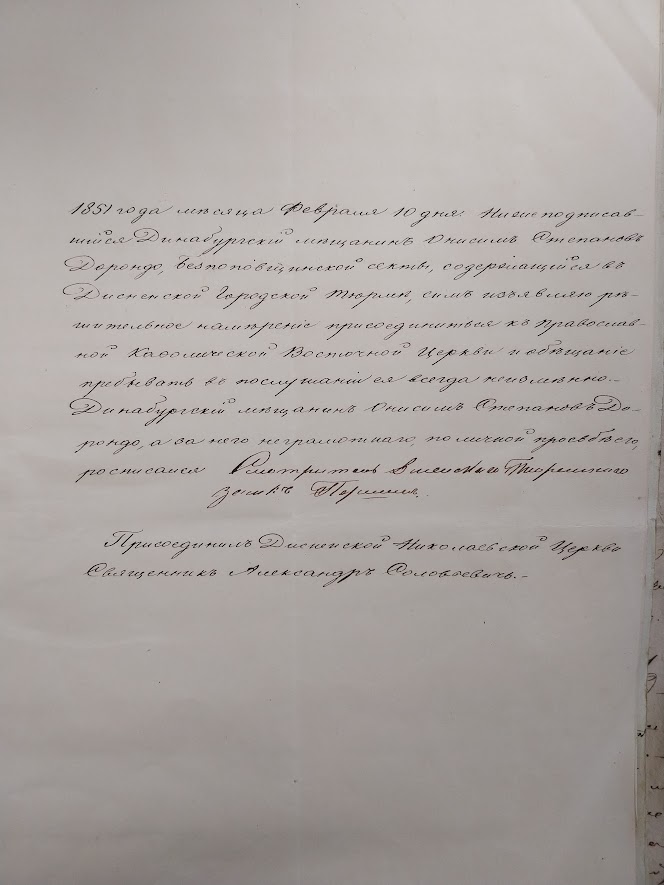 1851 года мѣсяца Февраля 10 дня: Нижеподписав-
шійся Динабургскій мѣщанинъ Онисимъ Степановъ
Дорондо, Безпоповщинской секты, содержащійся въ
Дисненской Городской Тюрмѣ, симъ изъявляю рѣ-
шительное намѣреніе присоединиться къ Православ-
ной Каѳолической Восточной Церкви и обѣщаніе
пребывать въ послушаніи ея всегда неизмѣнно.-
Динабургскій мѣщанинъ Онисимъ Степановъ До-
рондо, а за него неграмотнаго, по личной просьбѣ его,
росписался Смотритель Тюремнаго
замка
Присоединилъ Дисненской Николаевской Церкви
Священникъ Александръ Соловьевичъ.-